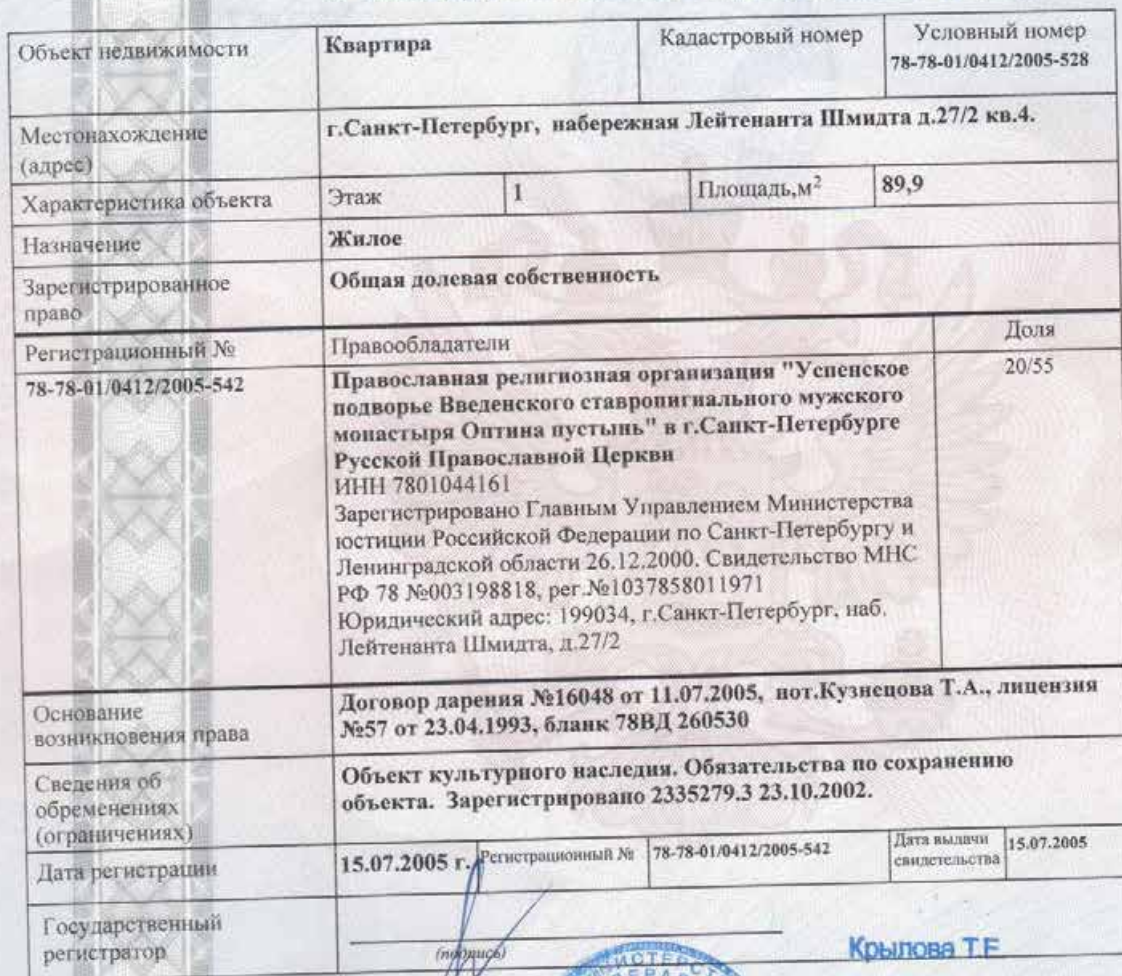 Объект недвижимости
Квартира
Кадастровый номер
Условный номер
78-78-01/0412/2005-528
Местонахождение
(адрес)
г.Санкт-Петербург, набережная Лейтенанта Шмидта д.27/2 кв.4.
Характеристика объекта
Этаж
1
Площадь,м²
89,9
Назначение
Жилое
Зарегистрированное
право
Общая долевая собственность
Регистрационный №
Правообладатели
Доля
78-78-01/0412/2005-542
Православная религиозная организация "Успенское
подворье Введенского ставропигиального мужского
монастыря Оптина пустынь" в г.Санкт-Петербурге
Русской Православной Церкви
ИНН 7801044161
Зарегистрировано Главным Управлением Министерства
юстиции Российской Федерации по Санкт-Петербургу и
Ленинградской области 26.12.2000. Свидетельство МНС
РФ 78 №003198818, рег.№1037858011971
Юридический адрес: 199034, г.Санкт-Петербург, наб.
Лейтенанта Шмидта, д.27/2
20/55
Основание
возникновения права
Договор дарения №16048 от 11.07.2005, нот.Кузнецова Т.А., лицензия
№57 от 23.04.1993, бланк 78ВД 260530
Сведения об
обременениях
(ограничениях)
Объект культурного наследия. Обязательства по сохранению
объекта. Зарегистрировано 2335279.3 23.10.2002.
Дата регистрации
15.07.2005 г.
Регистрационный №
78-78-01/0412/2005-542
Дата выдачи
свидетельства
15.07.2005
Государственный
регистратор
(подпись)
Крылова Т.Е